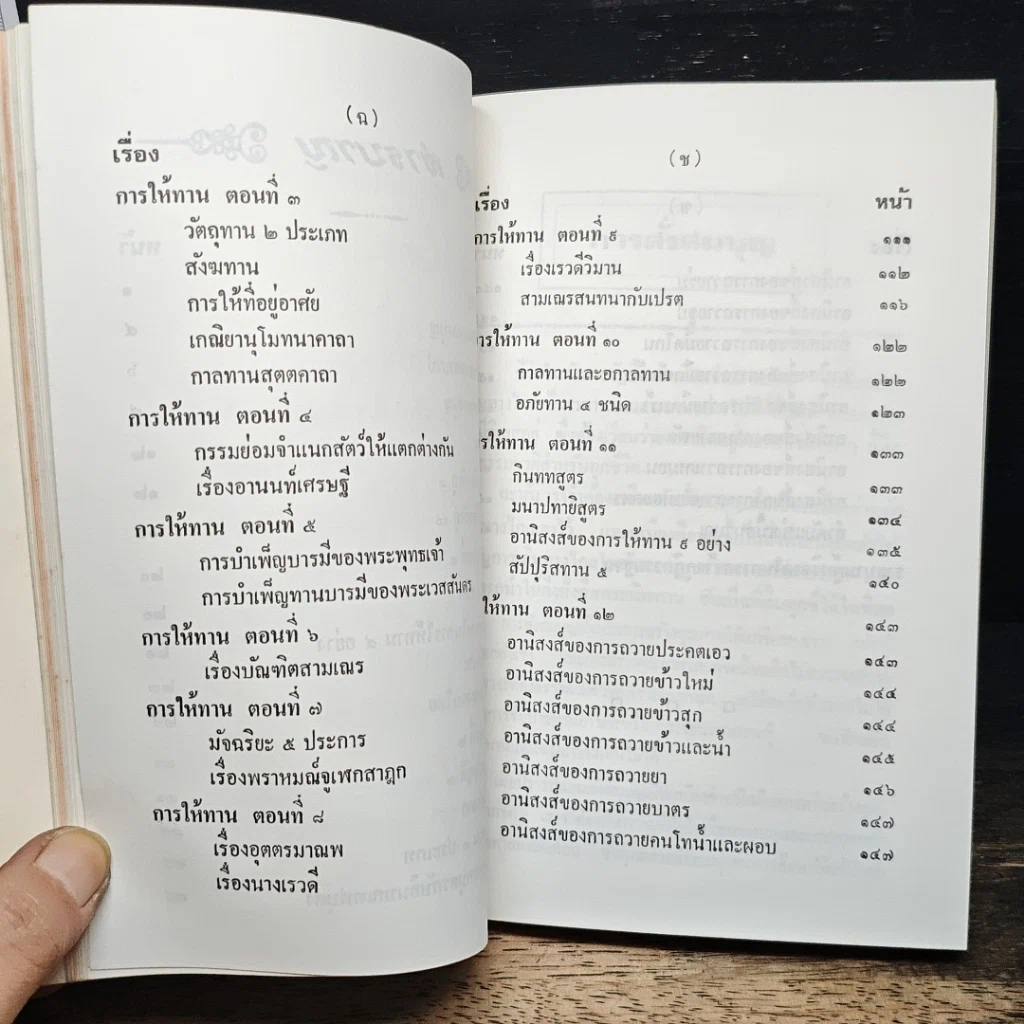 (ฉ)
เรื่อง
การให้ทาน ตอนที่ ๓
วัตถุทาน ๒ ประเภท
สังฆทาน
การให้ที่อยู่อาศัย
เกณิยานุโมทนาคาถา
กาลทานสุตตคาถา
การให้ทาน ตอนที่ ๔
กรรมย่อมจำแนกสัตว์ให้แตกต่างกัน
เรื่องอานนท์เศรษฐี
การให้ทาน ตอนที่ ๕
การบำเพ็ญบารมีของพระพุทธเจ้า
การบำเพ็ญทานบารมีของพระเวสสันดร
การให้ทาน ตอนที่ ๖
เรื่องบัณฑิตสามเณร
การให้ทาน ตอนที่ ๗
มัจฉริยะ ๕ ประการ
เรื่องพราหมณ์จูเฬกสาฎก
การให้ทาน ตอนที่ ๘
เรื่องอุตตรมาณพ
เรื่องนางเรวดี
(ช)
เรื่อง หน้า
การให้ทาน ตอนที่ ๙ ๑๑๑
เรื่องเรวดีวิมาน ๑๑๒
สามเณรสนทนากับเปรต ๑๑๖
การให้ทาน ตอนที่ ๑๐ ๑๒๒
กาลทานและอกาลทาน ๑๒๒
อภัยทาน ๔ ชนิด ๑๒๓
ารให้ทาน ตอนที่ ๑๑ ๑๓๓
กินททสูตร ๑๓๓
มนาปทายิสูตร ๑๓๔
อานิสงส์ของการให้ทาน ๙ อย่าง ๑๓๕
สัปปุริสทาน ๕ ๑๔๐
ให้ทาน ตอนที่ ๑๒ ๑๔๓
อานิสงส์ของการถวายประคตเอว ๑๔๓
อานิสงส์ของการถวายข้าวใหม่ ๑๔๔
อานิสงส์ของการถวายข้าวสุก ๑๔๔
อานิสงส์ของการถวายข้าวและน้ำ ๑๔๕
อานิสงส์ของการถวายยา ๑๔๖
อานิสงส์ของการถวายบาตร ๑๔๗
อานิสงส์ของการถวายคนโทน้ำและผอบ ๑๔๗